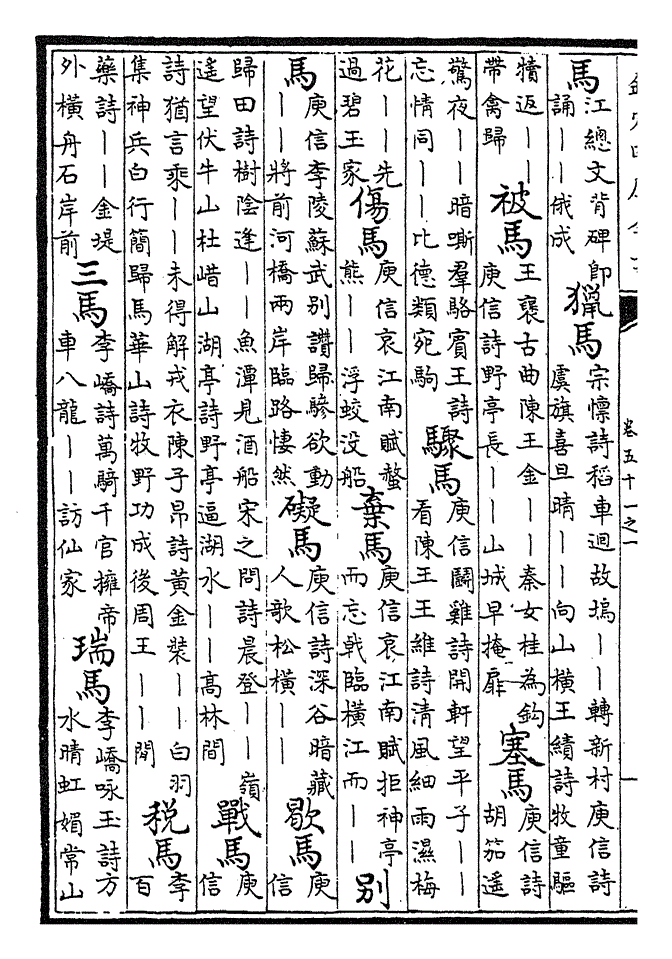 馬 江總文背碑即誦――俄成 獵馬 宗懍詩稻車迴故塢――轉新村庾信詩虞旗喜旦晴――向山橫王績詩牧童驅
犢返――帶禽歸 被馬 王襃古曲陳王金――秦女桂為鈎庾信詩野亭長――山城早掩扉 塞馬 庾信詩胡笳遥
驚夜――暗嘶羣駱賓王詩忘情同――比德類宛駒 驟馬 庾信鬭雞詩開軒望平子――看陳王王維詩清風細雨濕梅
花――先過碧玉家 傷馬 庾信哀江南賦螯熊――浮蛟没船 棄馬 庾信哀江南賦拒神亭而忘戟臨橫江而―― 别
馬 庾信李陵蘇武别讚歸驂欲動――將前河橋兩岸臨路悽然 礙馬 庾信詩深谷暗藏人歌松橫―― 歇馬 庾信
歸田詩樹陰逢――魚潭見酒船宋之問詩晨登――嶺遥望伏牛山杜㟙山湖亭詩野亭逼湖水――高林間 戰馬 庾信
詩猶言乘――未得解戎衣陳子昂詩黄金裝――白羽集神兵白行簡歸馬華山詩牧野功成後周王――閒 税馬 李百
藥詩――金堤外橫舟石岸前 三馬 李嶠詩萬騎千官擁帝車八龍――訪仙家 瑞馬 李嶠咏玉詩方水晴虹媚常山
卷五十一之一